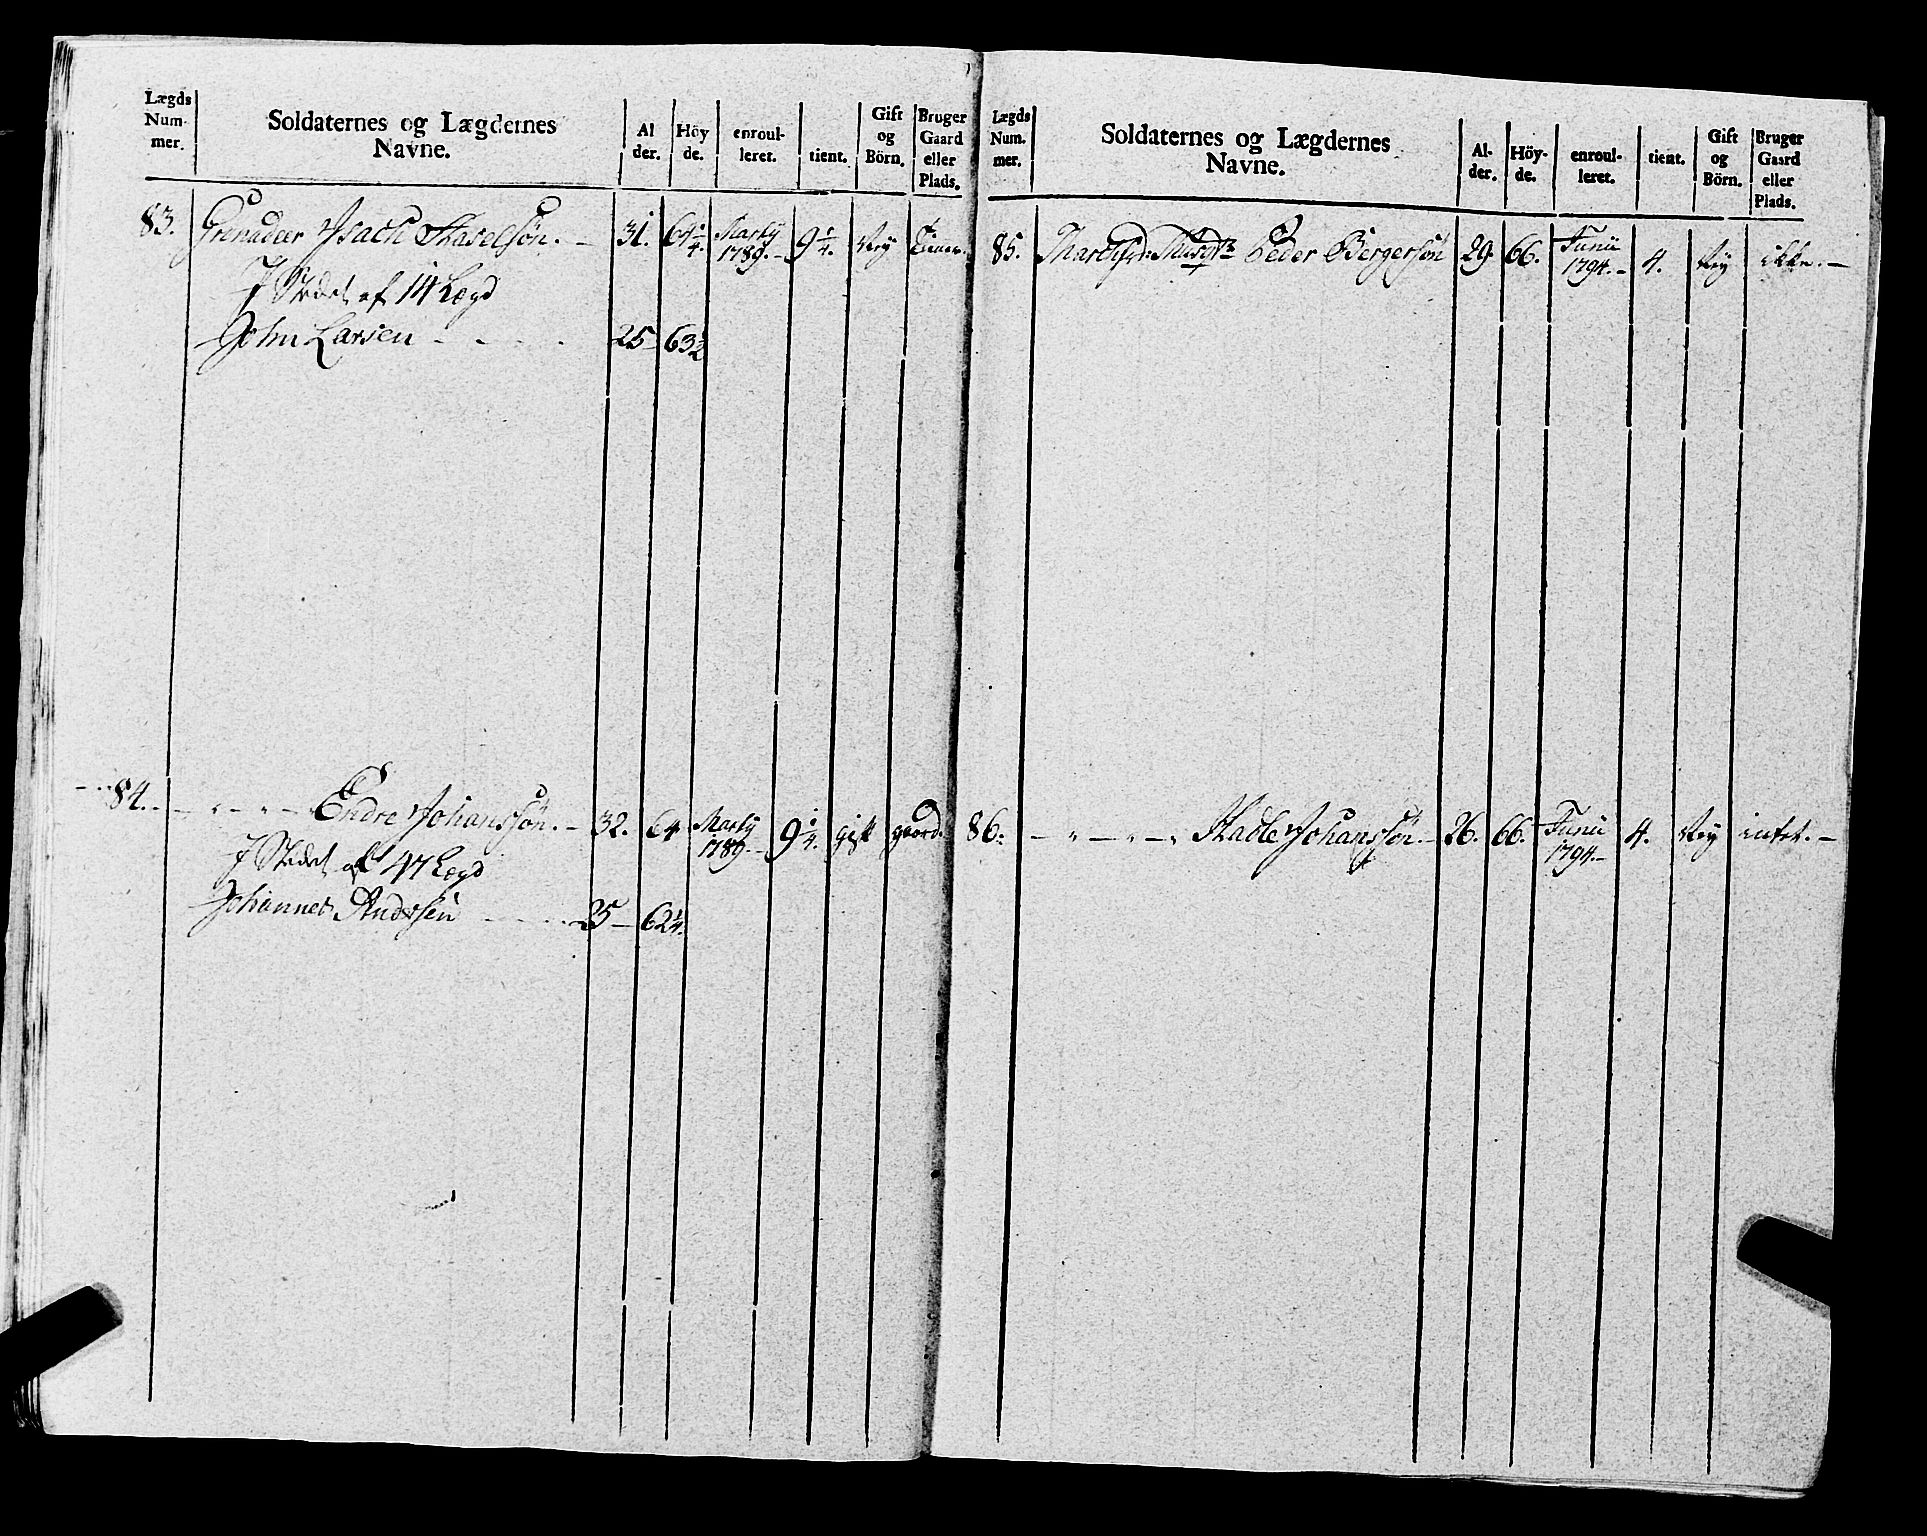 Lægds Num- mer. Soldaternes og Lægdernes Navne. Al der. Höy de. enroul- leret. tient. Gift og Börn. Bruger Gaard eller Plads.
83. Grenadeer Isach Haselsön. - 31. 64 1/4. Marty 1789. - 9 1/4. Ney
I Stedet af 14 Lægd
John Larsen - - - - 25 63 1/2
84. - - " - " - Endre Johanssön. - 32. 64 Marty 1789. - 9 1/4. gift gaard.
I Stedet af 47 Lægd
Johannes Andersen - - - - 25 - 62 1/4.
Lægds Num. mer. Soldaternes og Lægdernes Navne. Al- der. Höy- de. enroul- leret. tient. Gift og Börn. Bruger Gaard eller Plads.
85. Peder Bergersön 29. 66. Junii 1794. - 4. Ney ikke. -
86. - " - " - " Hadle Johanssön. - 26. 66. Junii 1794. - 4. Ney intet. -